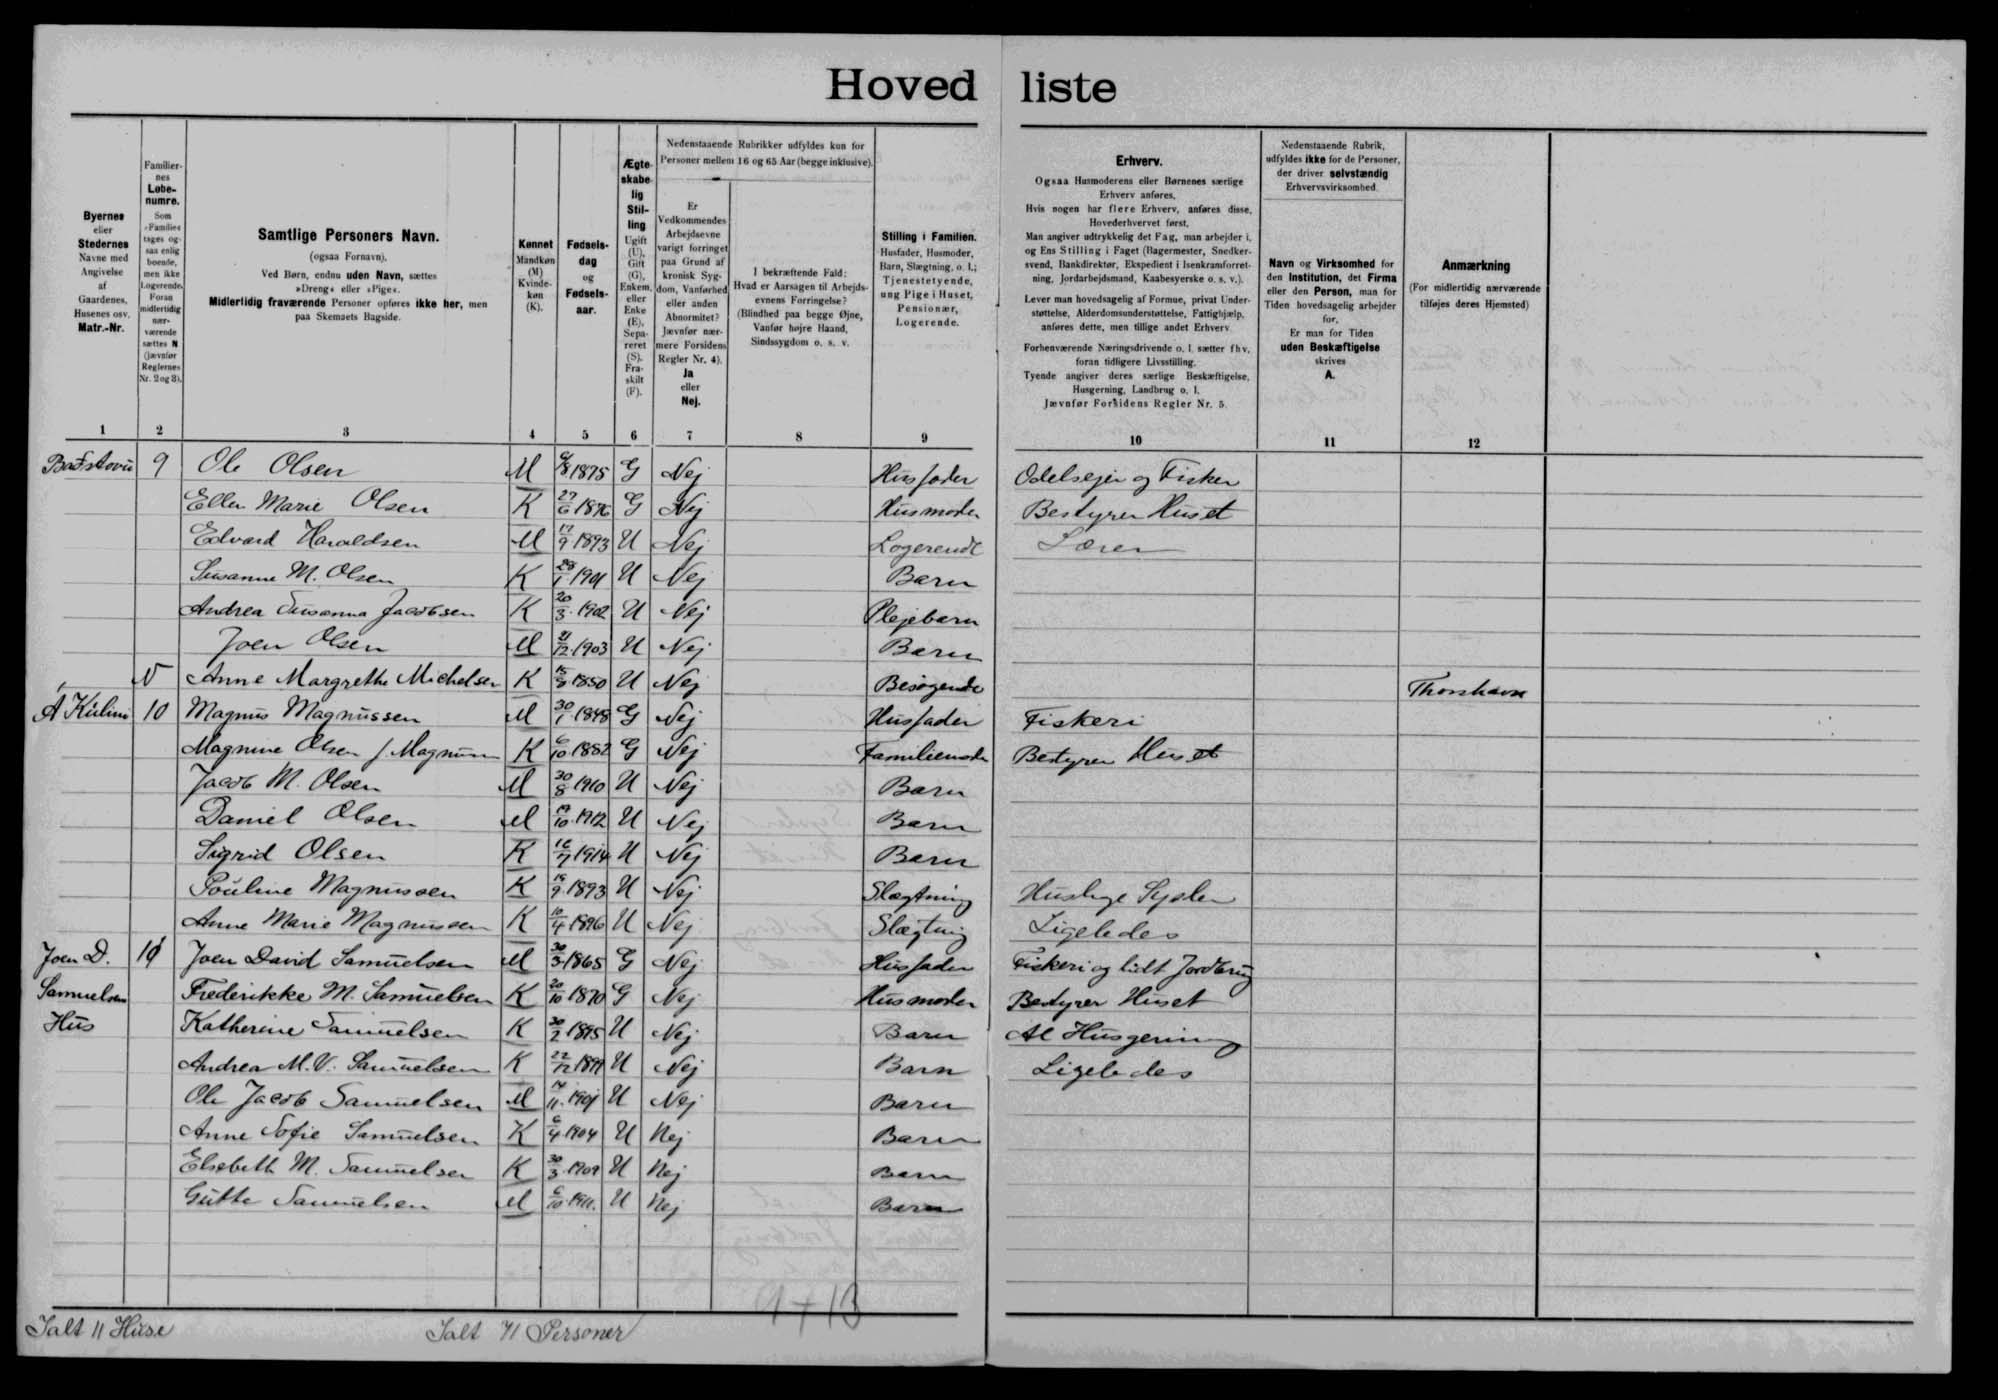 Hovedliste
Nedenstaaende Rubrikker udfyldes kun for
Personer mellem 16 og 65 Aar (begge inklusive).
Byernes
eller
Stedernes
Navne med
Angivelse
af
Gaardenes,
Husenes osv.
Matr.-Nr.
Familier-
nes
Løbe-
numre.
Som
»Familie«
tages og-
saa enlig
boende,
men ikke
Logerende.
Foran
midlertidig
nær-
værende
sættes N
(jævnfør
Reglernes
Nr. 2 og 3).
Samtlige Personers Navn.
(ogsaa Fornavn).
Ved Børn, endnu uden Navn, sættes
»Dreng« eller »Pige«.
Midlertidig fraværende Personer opføres ikke her, men
paa Skemaets Bagside.
Kønnet
Mandkøn
(M)
Kvinde-
køn
(K).
Fødsels-
dag
og
Fødsels-
aar.
Ægte-
skabe-
lig
Stil-
ling
Ugift
(U),
Gift
(G),
Enkem.
eller
Enke
(E),
Sepa-
reret
(S).
Fra-
skilt
(F).
Er
Vedkommendes
Arbejdsevne
varigt forringet
paa Grund af
kronisk Syg-
dom, Vanførhed
eller anden
Abnormitet?
Jævnfør nær-
mere Forsidens
Regler Nr. 4).
Ja
eller
Nej.
I bekræftende Fald:
Hvad er Aarsagen til Arbejds-
evnens Forringelse?
(Blindhed paa begge Øjne,
Vanfør højre Haand,
Sindssygdom o. s. v.
Stilling i Familien.
Husfader, Husmoder,
Barn, Slægtning, o. l.;
Tjenestetyende,
ung Pige i Huset,
Pensionær,
Logerende.
Erhverv.
Ogsaa Husmoderens eller Børnenes særlige
Erhverv anføres,
Hvis nogen har flere Erhverv, anføres disse,
Hovederhvervet først,
Man angiver udtrykkelig det Fag, man arbejder i,
og Ens Stilling i Faget (Bagermester, Snedker-
svend, Bankdirektør, Ekspedient i Isenkramforret-
ning, Jordarbejdsmand, Kaabesyerske o. s. v.).
Lever man hovedsagelig af Formue, privat Under-
støttelse, Alderdomsunderstøttelse, Fattighjælp,
anføres dette, men tillige andet Erhverv.
Forhenværende Næringsdrivende o. l. sætter fhv.
foran tidligere Livsstilling.
Tyende angiver deres særlige Beskæftigelse,
Husgerning, Landbrug o. l.
Jævnfør Forsidens Regler Nr. 5.
Nedenstaaende Rubrik,
udfyldes ikke for de Personer,
der driver selvstændig
Erhvervsvirksomhed.
Navn og Virksomhed for
den Institution, det Firma
eller den Person, man for
Tiden hovedsagelig arbejder
for,
Er man for Tiden
uden Beskæftigelse
skrives
A.
Anmærkning
(For midlertidig nærværende
tilføjes deres Hjemsted)
1 2 3 4 5 6 7 8 9 10 11 12
9 Ole Olsen M 1875 G Nej Husfader Odelsejer og Fisker
Ellen Marie Olsen K 27/6 1876 G Nej Husmoder Bestyrer Huset
Edvard Haraldsen M 17/9 1893 U Nej Logerende Lærer
Susanne M. Olsen K 28/1 1901 U Nej Barn
Andrea Susanna Jacobsen K 20/3 1902 U Nej Plejebarn
Joen Olsen M 1903 U Nej Barn
N Anne Margrethe Michelsen K 1850 U Nej Besøgende Thorshavn
Á Kúlini 10 Magnus Magnussen M 30/1 1848 G Nej Husfader Fiskeri
Magnine Olsen f. K 6/10 1882 G Nej Bestyrer Huset
Jacob M. Olsen M 30/8 1910 U Nej Barn
Daniel Olsen M 19/10 1912 U Nej Barn
Sigrid Olsen K 16/7 1914 U Nej Barn
Pouline Magnussen K 1893 U Nej Slægtning Huslige Sysler
Anne Marie Magnussen K 10/4 1896 U Nej Slægtning Ligeledes
Joen D. Joen David Samuelsen M 30/3 1865 G Nej Husfader Fiskeri og lidt Jordbrug
Samuelsen Frederikke M. Samuelsen K 20/10 1870 G Nej Husmoder Bestyrer Huset
Hus Katherine Samuelsen K 1895 U Nej Barn Al Husgerning
Andrea M. V. Samuelsen K 22/12 U Nej Barn Ligeledes
Ole Jacob Samuelsen M 1901 U Nej Barn
Anne Sofie Samuelsen K 6/4 1904 U Nej Barn
Elsebeth M. Samuelsen K 30/3 1909 U Nej Barn
Gutte Samuelsen M 6/10 1911. U Nej Barn
9 + 13
Ialt 11 Huse Ialt 71 Personer